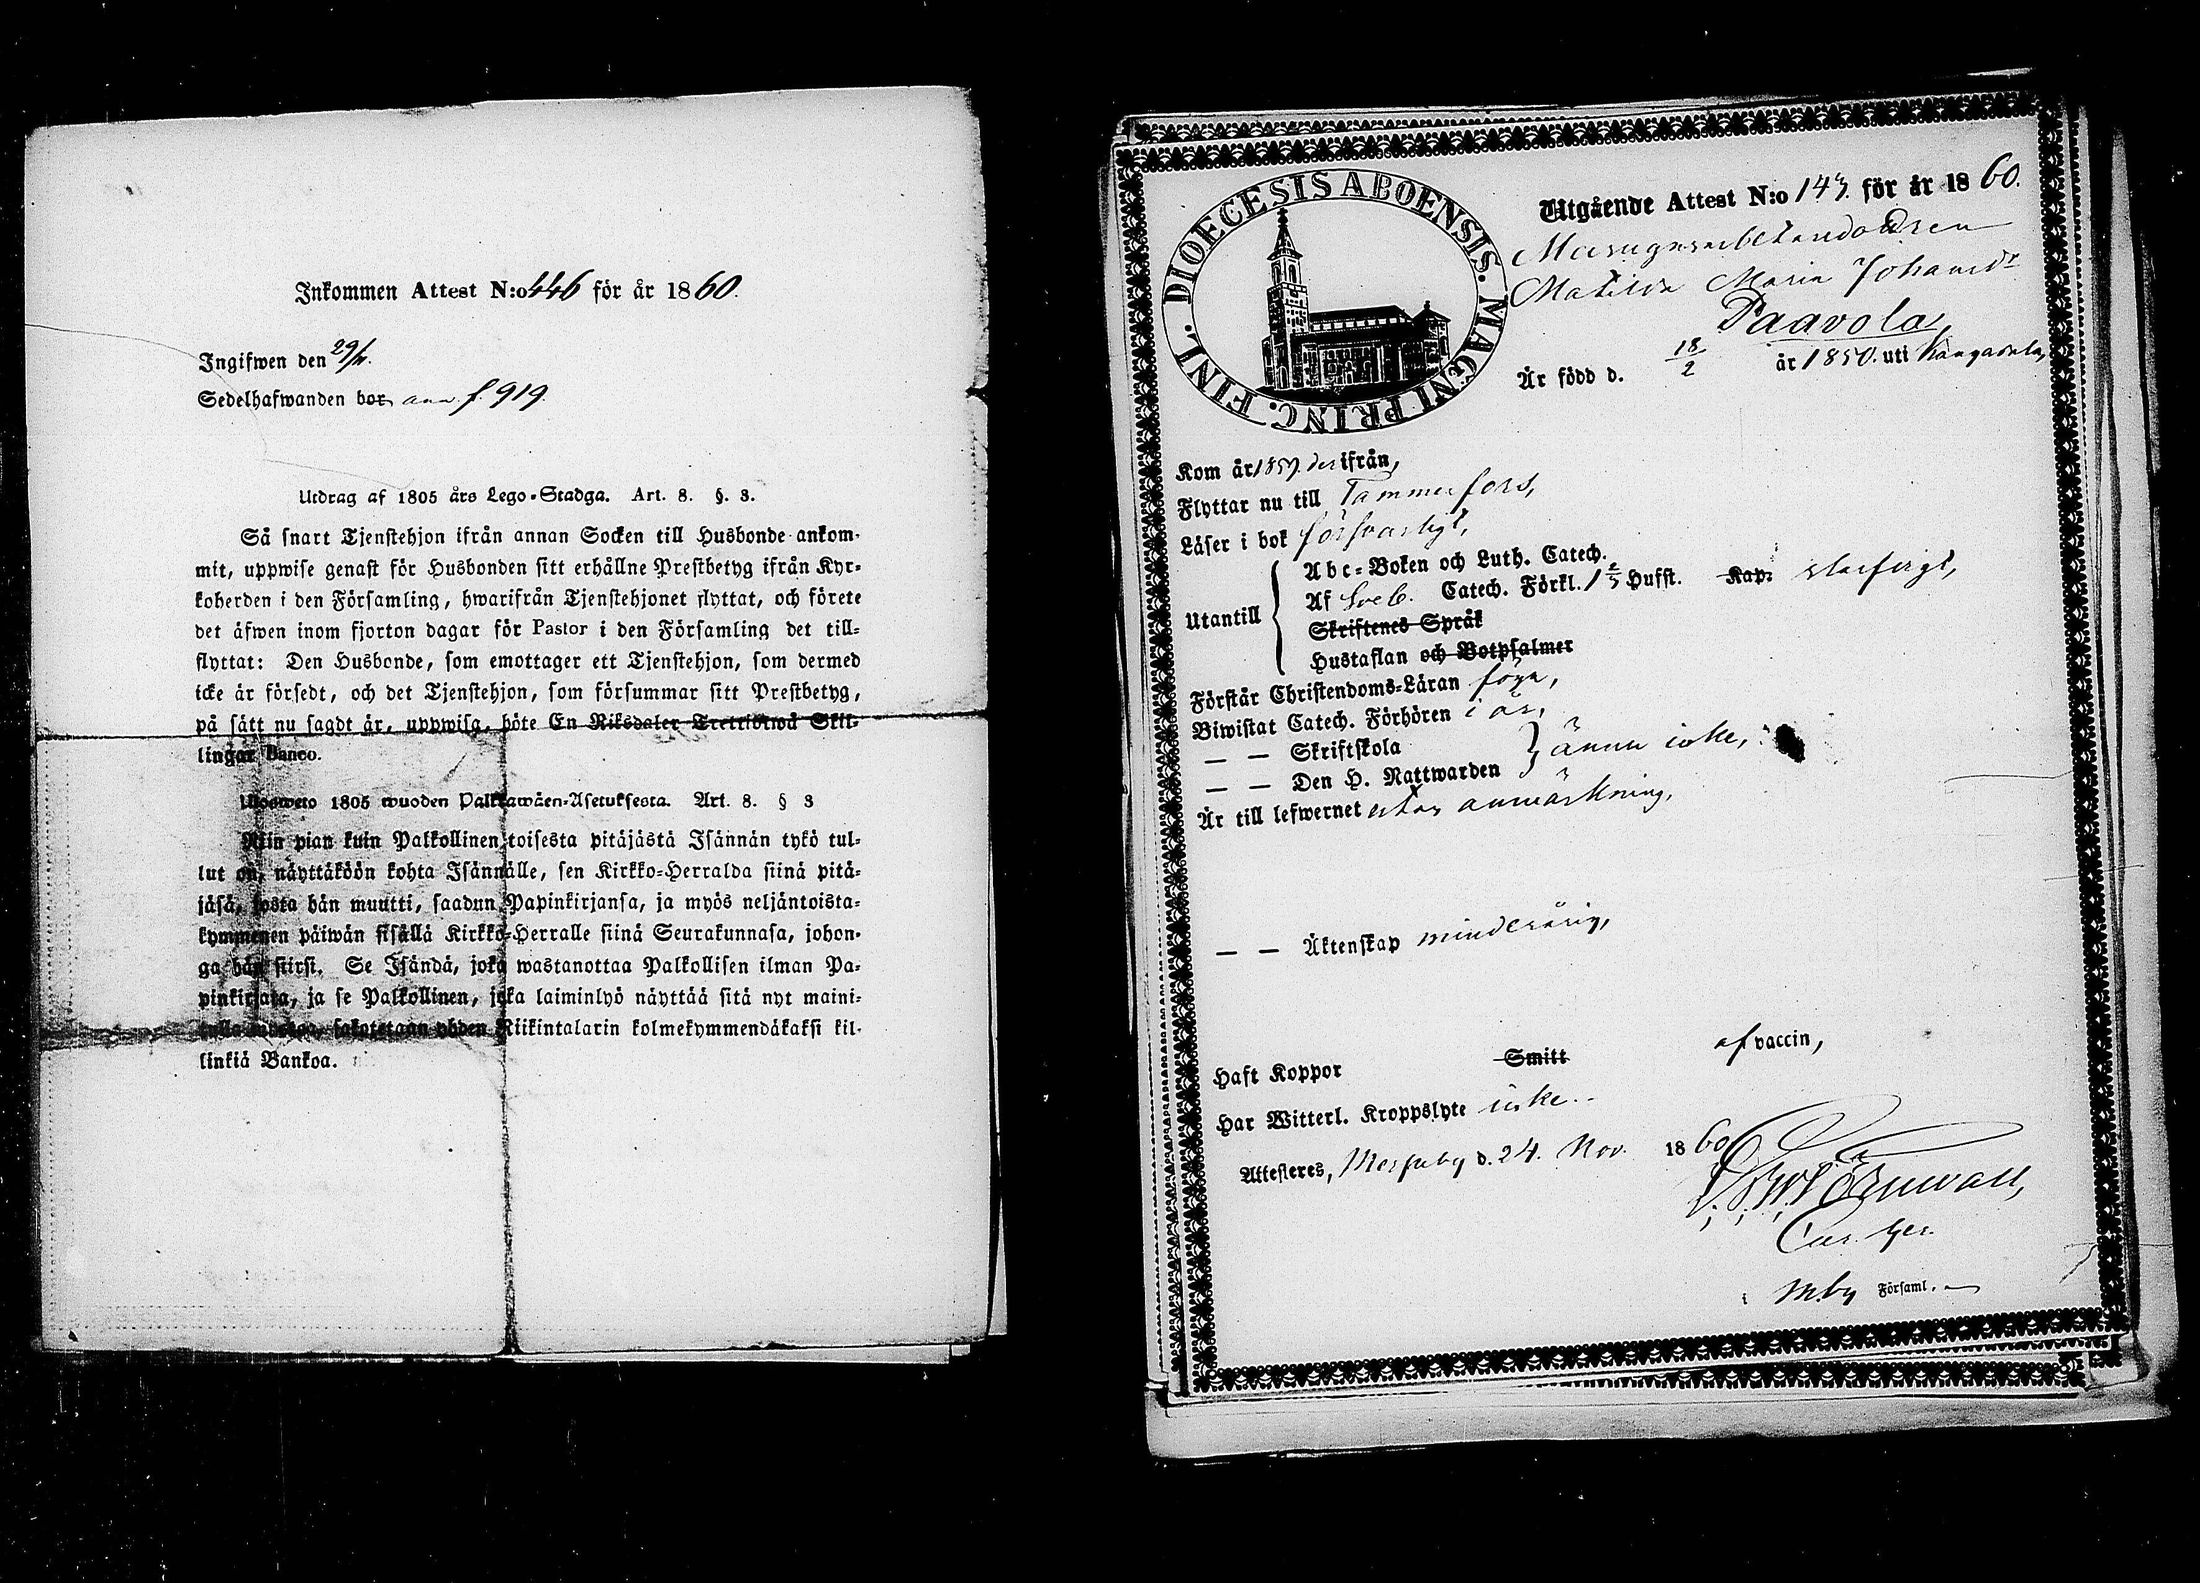 Inkommen Attest N:o 446 för år 1860.
Ingifwen den 29/11.
Sedelhafwanden bor ann. f. 919.
Utdrag af 1805 års Lego-Stadga. Art. 8. §. 3.
Så snart Tjenstehjon ifrån annan Socken till Husbonde ankom-
mit, uppwise genast för Husbonden sitt erhållne Prestbetyg ifrån Kyr-
koherden i den Församling, hwarifrån Tjenstehjonet flyttat, och förete
det äfwen inom fjorton dagar för Pastor i den Församling det till-
flyttat: Den Husbonde, som emottager ett Tjenstehjon, som dermed
icke är försedt, och det Tjenstehjon, som försummar sitt Prestbetyg,
på sätt nu sagdt är, uppwisa, böte En Riksdaler Trettiotwå Skil-
lingar Banco.
Ulosweto 1805 wuoden Palkkawäen-Asetuksesta. Art. 8. § 3
Niin pian kuin Palkollinen toisesta pitäjästä Isännän tykö tul-
lut on, näyttäköön kohta Isännälle, sen Kirkko-Herralda siinä pitä-
jäsä, josta hän muutti, saadun Papinkirjansa, ja myös neljäntoista-
kymmenen päiwän sisällä Kirkko-Herralle siinä Seurakunnasa, johon-
ga hän siirsi. Se Isändä, joka wastanottaa Palkollisen ilman Pa-
pinkirjata, ja se Palkollinen, joka laiminlyö näyttää sitä nyt maini-
sakotetaan yhden Riikintalarin kolmekymmendäkaksi kil-
linkiä Bankoa.
DIOECESIS ABOENSIS. MAGNI PRINC. FINL.
Utgående Attest N:o 143. för år 1860.
Masugnsarbetaredottren
Matilda Maria Johansdr
Paavola,
Är född d. 18/2 år 1850. uti Kangasala,
Kom år 1859. der ifrån,
Flyttar nu till Tammerfors,
Läser i bok försvarligt,
Utantill
Abc-Boken och Luth. Catech.
Af Sveb. Catech. Förkl. 1 2/5 Hufst. Kap.
Skriftenes Språk
Hustaflan och Botpsalmer
Förstår Christendoms-Läran föga,
Biwistat Catech. Förhören i år,
— — Skriftskola
— — Den H. Nattwarden } ännu icke,
Är till lefwernet utan anmärkning,
— — Äktenskap minderårig,
Haft Koppor Smitt af vaccin,
Har Witterl. Kroppslyte icke.
Attesteres, Messuby d. 24. Nov. 1860
Törnwall,
i Mby Församl.